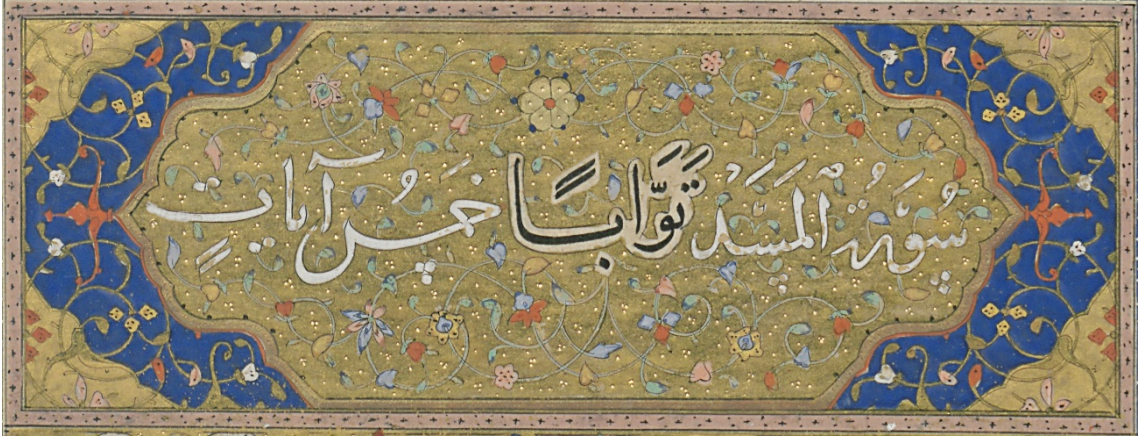 سُورَةُ الْمَسَدْ تَوَّابًا خَمْسُ آيَاتٍ